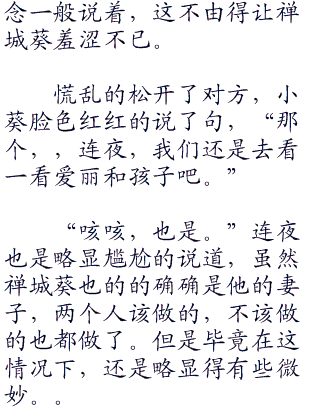 念一般说着，这不由得让禅
城葵羞涩不已。
慌乱的松开了对方，小
葵脸色红红的说了句，“那
个，，连夜，我们还是去看
一看爱丽和孩子吧。”
“咳咳，也是。”连夜
也是略显尴尬的说道，虽然
禅城葵也的的确确是他的妻
子，两个人该做的，不该做
的也都做了。但是毕竟在这
情况下，还是略显得有些微
妙。。